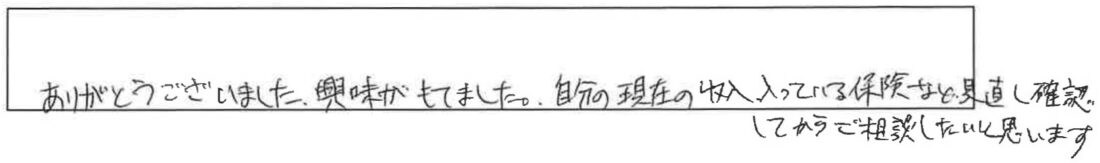 ありがとうございました、興味がもてました。自分の現在の収入、入っている保険など見直し確認
してからご相談したいと思います